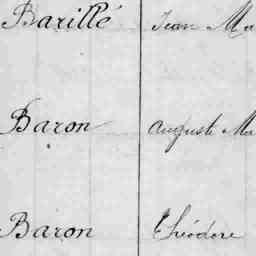 Barillé Jean Ma
Baron Auguste Ma
Baron Théodore